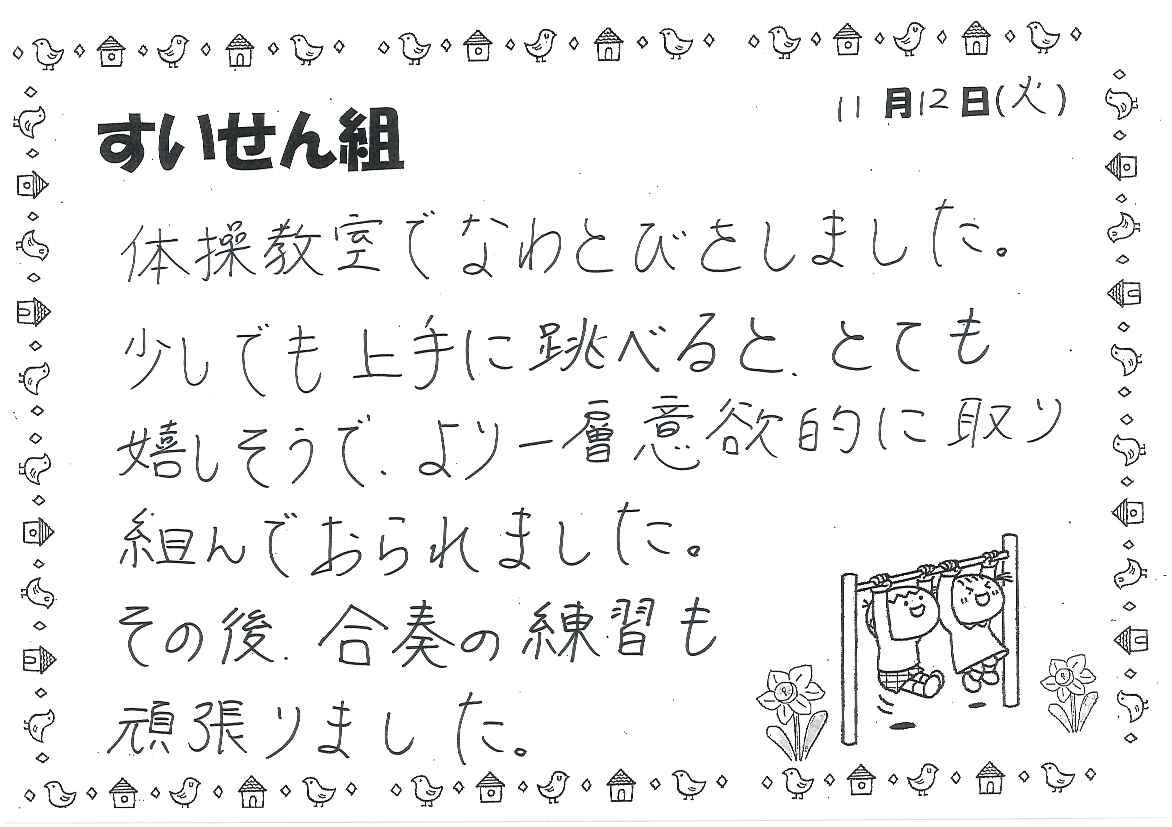 11月12日(火)
すいせん組
体操教室でなわとびをしました。
少しでも上手に跳べると、とても
嬉しそうで、より一層意欲的に取り
組んでおられました。
その後、合奏の練習も
頑張りました。